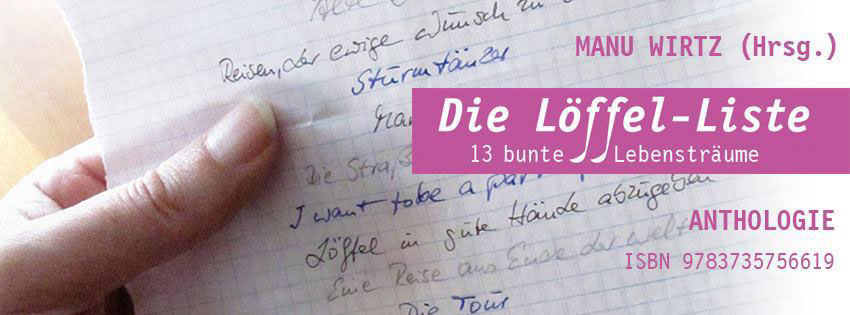 Reisen, der ewige Wunsch zu
Sturmtänzer
Die Straß
I want to be a part
Löffel in gute Hände abzugeben
Eine Reise ans Ende der Welt
Die Tour
MANU WIRTZ (Hrsg.)
Die Löffel-Liste
13 bunte Lebensträume
ANTHOLOGIE
ISBN 9783735756619